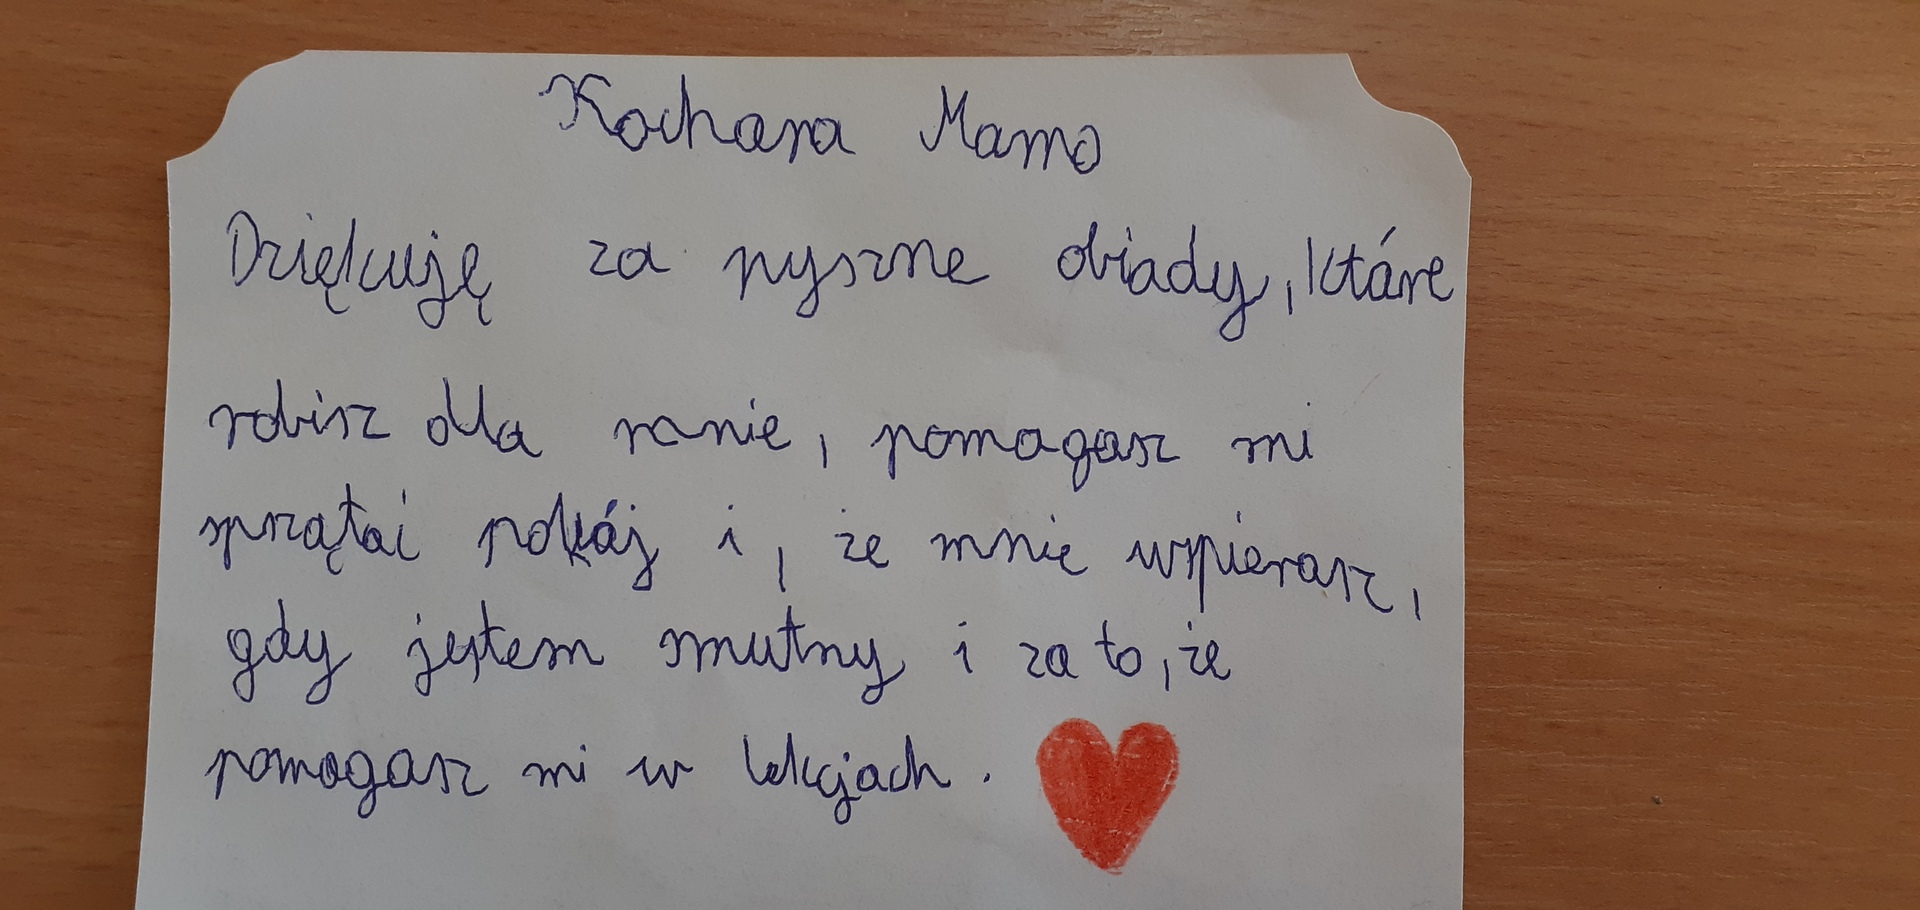 Kochana Mamo
Dziękuję za pyszne obiady, które
robisz dla mnie, pomagasz mi
sprzątać pokój i, że mnie wspierasz,
gdy jestem smutny i za to, że
pomagasz mi w lekcjach.